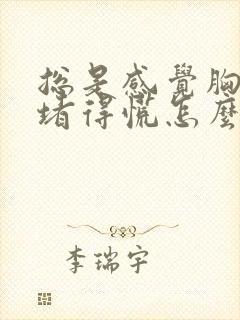 總是感覺胸
堵得慌怎麼
李瑞宇